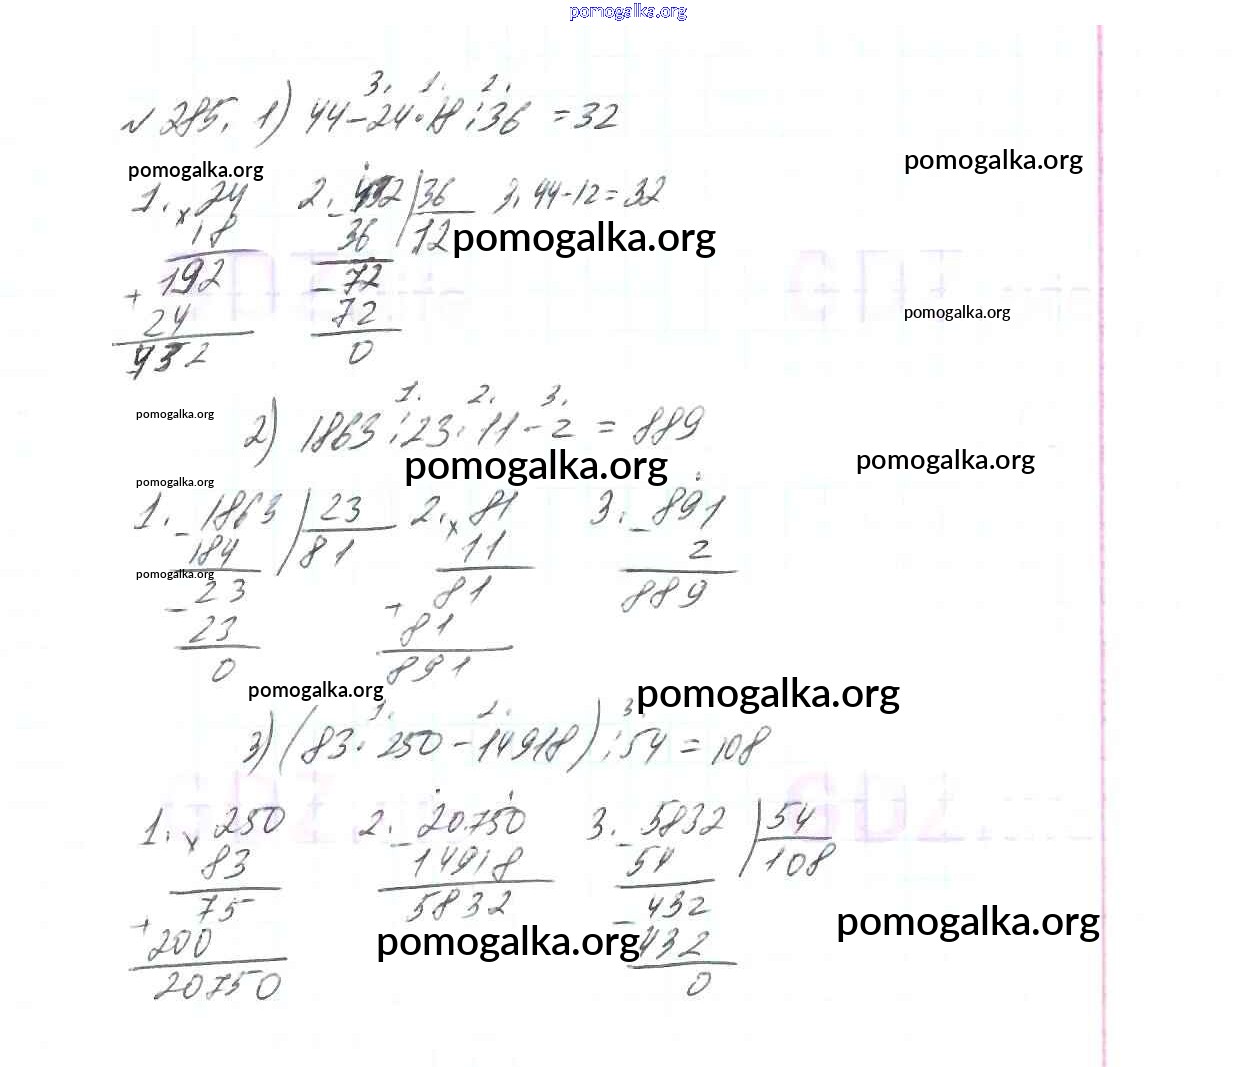 pomogalka.org
3. 1. 2.
№ 285. 1) 44 - 24 · 18 : 36 = 32
pomogalka.org
pomogalka.org
1. × 24 2. - 432 | 36 3. 44 - 12 = 32
18 36 12
pomogalka.org
192 - 72
+ 24 72
pomogalka.org
432 0
1. 2. 3.
pomogalka.org
2) 1863 : 23 · 11 - 2 = 889
pomogalka.org
pomogalka.org
pomogalka.org
1. - 1863 | 23 2. × 81 3. - 891
184 81 11 2
pomogalka.org
- 23 81 889
23 + 81
0 891
pomogalka.org
pomogalka.org
1. 2. 3
3) (83 · 250 - 14918) : 54 = 108
1. × 250 2. - 20750 3. - 5832 | 54
83 14918 54 108
75 5832 - 432
pomogalka.org
+ 200 432
pomogalka.org
20750 0